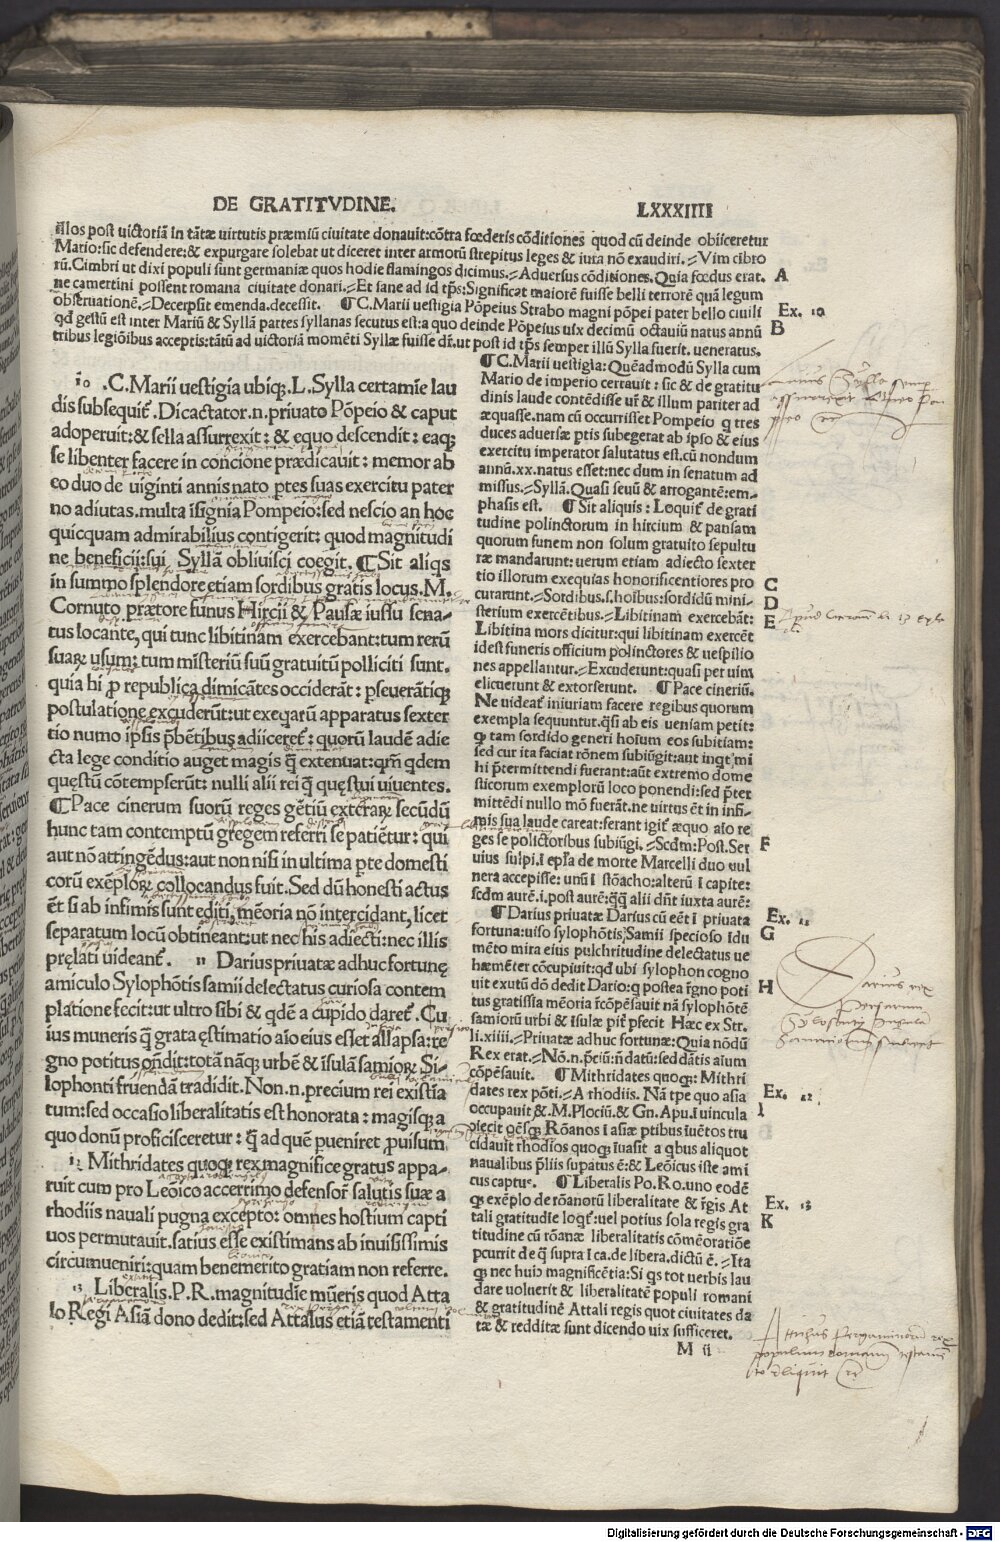 DE GRATITVDINE. LXXXIIII
illos post uictoriā in tātæ uirtutis præmiū ciuitate donauit: cōtra fœderis cōditiones quod cū deinde obiiceretur
Mario: sic defendere: & expurgare solebat ut diceret inter armorū strepitus leges & iura nō exaudiri. Vim cibro
rū. Cimbri ut dixi populi sunt germaniæ quos hodie flamingos dicimus. Aduersus cōditiones. Quia fœdus erat.
ne camertini possent romana ciuitate donari. Et sane ad id tp̄s: Significat maiorē fuisse belli terrorē quā legum
obseruationē. Decerpsit emenda. decessit. ¶ C. Marii uestigia Pōpeius Strabo magni pōpei pater bello ciuili
qd̄ gestū est inter Mariū & Syllā partes syllanas secutus est: a quo deinde Pōpeius usꝫ decimū octauiū natus annū
tribus legiōibus acceptis: tātū ad uictoriā momēti Syllæ fuisse dr̄. ut post id tp̄s semper illū Sylla fuerit. ueneratus.
A
Ex. 10
B
10 .C. Marii uestigia ubiqꝫ. L. Sylla certamīe lau
dis subsequit᷑. Dicactator. n. priuato Pōpeio & caput
adoperuit: & sella assurrexit: & equo descendit: eaqꝫ
se libenter facere in concione prædicauit: memor ab
eo duo de uiginti annis nato ꝑtes suas exercitu pater
no adiutas. multa īsignia Pompeio: sed nescio an hoc
quicquam admirabilius contigerit: quod magnitudi
ne beneficii: sui Syllā obliuisci coegit. ¶ Sit aliqs
in summo splendore etiam sordibus gratis locus. M.
Cornuto prætore funus Hircii & Pausæ iussu sena-
tus locante, qui tunc libitinam exercebant: tum rerū
suarꝝ usum: tum misteriū suū gratuitū polliciti sunt.
quia hi ꝓ republica dimicātes occiderāt: ꝑseuerātiqꝫ
postulatione excuderūt: ut exeqarū apparatus sexter
tio numo ipsis p̄bētibus adiiceret᷑: quorū laudē adie
cta lege conditio auget magis q̄ extenuat: qm̄ qdem
quęstū cōtempserūt: nulli alii rei q̄ quęstui uiuentes.
¶ Pace cinerum suorū reges gētiū exterarꝝ secūdū
hunc tam contemptū gregem referri se patiētur: qui
aut nō attingēdus: aut non nisi in ultima ꝑte domesti
corū exēplorꝝ collocandus fuit. Sed dū honesti actus
ēt si ab infimis sunt editi, mēoria nō intercidant, licet
separatum locū obtineant: ut nec his adiecti: nec illis
pręlati uideant᷑. 11 Darius priuatæ adhuc fortunę
amiculo Sylophōtis samii delectatus curiosa contem
platione fecit: ut ultro sibi & qdē a cupido daret᷑. Cu
ius muneris q̄ grata ęstimatio aīo eius esset allapsa: re
gno potitus on̄dit: totā nāqꝫ urbē & īsulā samiorꝝ Si-
lophonti fruendā tradidit. Non. n. precium rei existīa
tum: sed occasio liberalitatis est honorata: magisqꝫ a
quo donū proficisceretur: q̄ ad quē pueniret ꝓuisum
12 Mithridates quoqꝫ rex magnifice gratus appa-
ruit cum pro Leōico accerrimo defensor᷑ salutis suæ a
rhodiis nauali pugna excepto: omnes hostium capti
uos permutauit. satius esse existimans ab inuisissimis
circumueniri: quam benemerito gratiam non referre.
13 Liberalis. P. R. magnitudīe mūeris quod Atta
lo Regi Asiā dono dedit: sed Attalus etiā testamenti
¶ C. Marii uestigia: Quēadmodū Sylla cum
Mario de imperio certauit: sic & de gratitu
dinis laude contēdisse ur̄ & illum pariter ad
æquasse. nam cū occurrisset Pompeio q tres
duces aduersæ ꝑtis subegerat ab ipso & eius
exercitu imperator salutatus est. cū nondum
annū. xx. natus esset: nec dum in senatum ad
missus. Syllā. Quasi seuū & arrogantē: em-
phasis est. ¶ Sit aliquis: Loquit᷑ de grati
tudine polinctorum in hircium & pansam
quorum funem non solum gratuito sepultu
ræ mandarunt: uerum etiam adiecto sexter
tio illorum exequias honorificentiores pro
curarunt. Sordibus. s. hoībus: sordidū mini-
sterium exercētibus. Libitinam exercebāt:
Libitina mors dicitur: qui libitinam exercēt
idest funeris officium polinctores & uespilio
nes appellantur. Excuderunt: quasi per uim
elicuerunt & extorserunt. ¶ Pace cineriū.
Ne uideat᷑ iniuriam facere regibus quorum
exempla sequuntur. q̄si ab eis ueniam petit:
ꝙ tam sordido generi hoīum eos subitiam:
sed cur ita faciat rōnem subiūgit: aut inqt᷑ mi
hi p̄termittendi fuerant: aūt extremo dome
sticorum exemplorū loco ponendi: sed p̄ter
mittēdi nullo mō fuerāt. ne uirtus ēt in infi-
mis sua laude careat: ferant igit᷑ æquo aīo re
ges se polictoribus subiūgi. Scd̄m: Post. Ser
uius sulpi. ī epl̄a de morte Marcelli duo uul
nera accepisse: unū ī stōacho: alterū ī capite:
scd̄m aurē. i. post aurē: q̄q̄ alii dn̄t iuxta aurē:
¶ Darius priuatæ Darius cū eēt ī priuata
fortuna: uiso sylophōtis Samii specioso īdu
mēto mira eius pulchritudine delectatus ue
hæmēter cōcupiuit: qd̄ ubi sylophon cogno
uit exutū dō dedit Dario: q postea r̄gno poti
tus gratissīa mēoria r̄cōpēsauit nā sylophōtē
samiorū urbi & īsulæ pīt᷑ pfecit Hæc ex Str.
li. xiiii. Priuatæ adhuc fortunæ: Quia nōdū
Rex erat. Nō. n. p̄ciū: n̄ datū: sed dātis aīum
cōpēsauit. ¶ Mithridates quoqꝫ: Mithri
dates rex pōti. A rhodiis. Nā tp̄e quo asia
occupauit &. M. Plociū. & Gn. Apu. ī uincula
ꝓiecit oēsqꝫ Rōanos ī asiæ ꝑtibus īuētos tru
cidauit rhodios quoqꝫ īuasit a qbus aliquot
naualibus p̄liis supatus ē: & Leōicus iste ami
cus captus. ¶ Liberalis Po. Ro. uno eodē
qꝫ exēplo de rōanorū liberalitate & r̄gis At
tali gratitudīe loqt᷑: uel potius sola regis gra
titudine cū rōanæ liberalitatis cōmeōratiōe
pcurrit de q̄ supra ī ca. de libera. dictū ē. Ita
qꝫ nec huic magnificētia: Si qs tot uerbis lau
dare uoluerit & liberalitatē populi romani
& gratitudinē Attali regis quot ciuitates da
tæ & redditæ sunt dicendo uix sufficeret.
M ii
C
D
E
F
Ex. 11
G
H
Ex. 12
I
Ex. 13
K
Digitalisierung gefördert durch die Deutsche Forschungsgemeinschaft - DFG